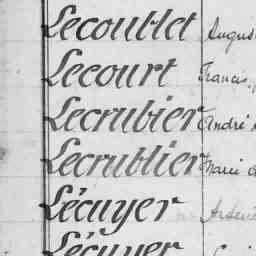 Lecoublet
Lecourt Francis
Lecrubier André
Lecrublier Marie
Lécuyer
Lécuyer